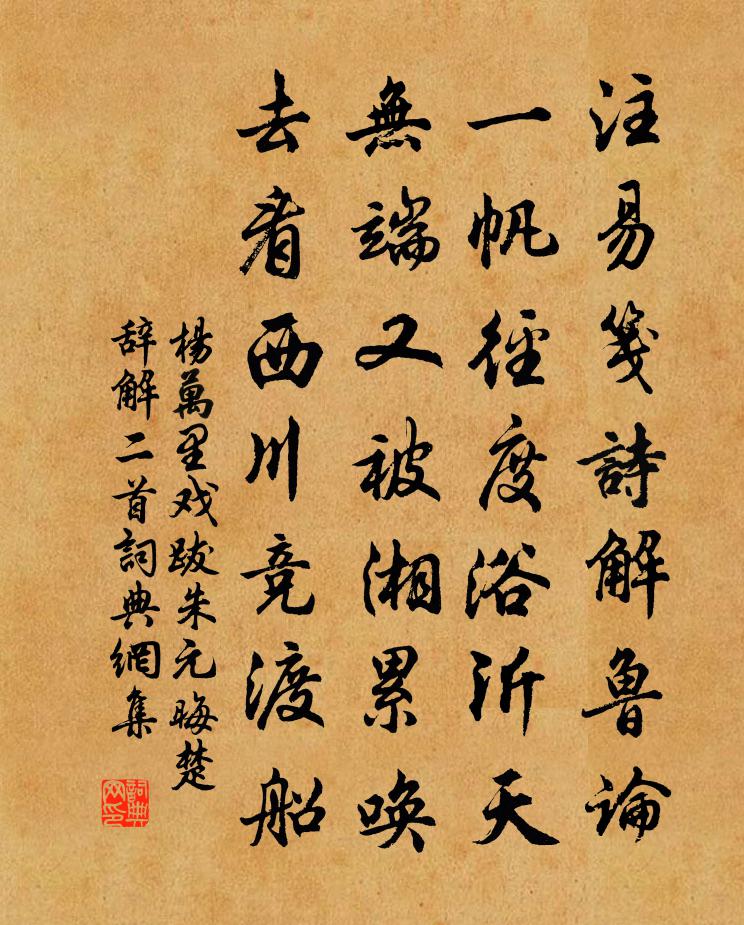 注易箋詩解魯論
一帆徑度浴沂天
無端又被湘累喚
去看西川竞渡船
楊萬里戏跋朱元晦楚
辞解二首詞典網集
詞典
网印